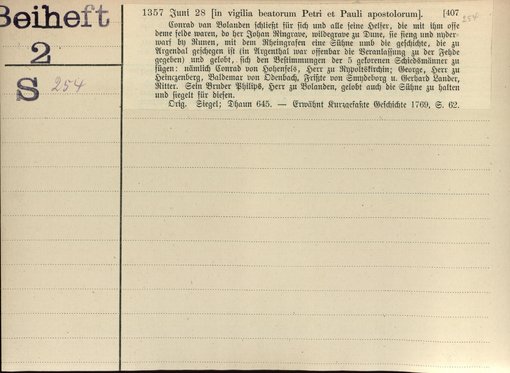 Beiheft
2
S 254
1357 Juni 28 [in vigilia beatorum Petri et Pauli apostolorum]. [407
254
Conrad van Bolanden schließt für sich und alle seine Helfer, die mit ihm offe
deme felde waren, do her Johan Ringrave, wildegrave zu Dune, sie fieng und nyder-
warf by Numen, mit dem Rheingrafen eine Sühne umb die geschichte, die zu
Argendal geschegen ist (in Argenthal war offenbar die Veranlassung zu der Fehde
gegeben) und gelobt, sich den Bestimmungen der 5 gekorenen Schiedsmänner zu
fügen: nämlich Conrad von Hohenfels, Herr zu Rypoltskirchin; George, Herr zu
Heinczenberg, Baldemar von Odenbach, Frißte von Smydeborg u. Gerhard Lander,
Ritter. Sein Bruder Philips, Herr zu Bolanden, gelobt auch die Sühne zu halten
und siegelt für diesen.
Orig. Siegel; Dhaun 645. — Erwähnt Kurzgefaßte Geschichte 1769, S. 62.